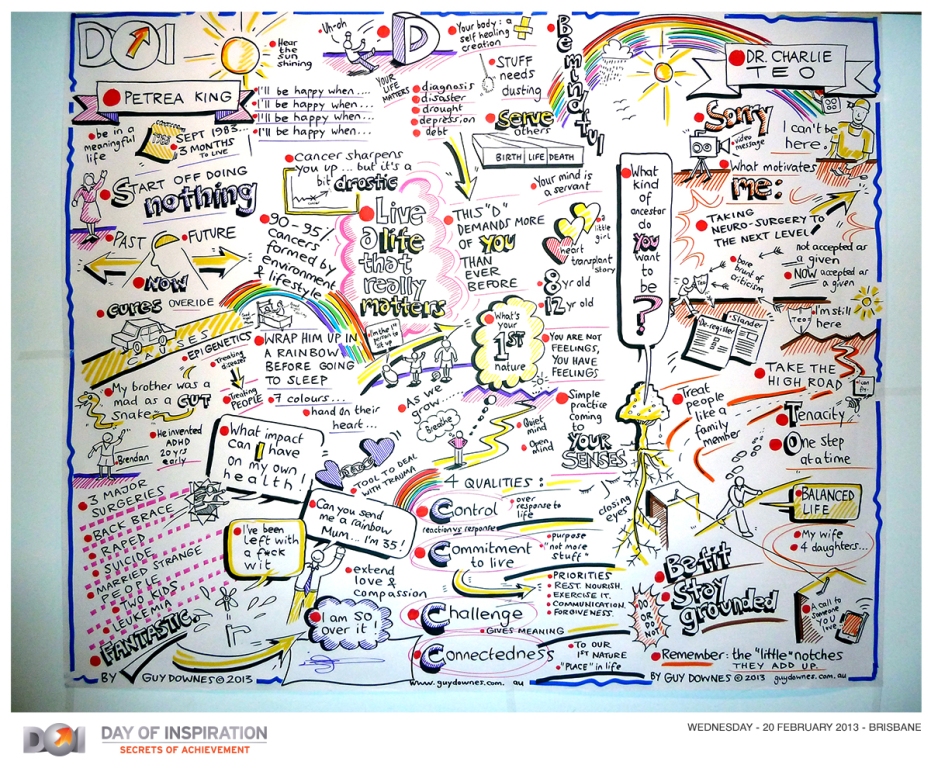 DOI
PETREA KING
be in a
meaningful
life
SEPT 1983...
3 MONTHS
TO LIVE
START OFF DOING
nothing
PAST
FUTURE
NOW
Hear
the
sun
shining
Uh-oh
D
YOUR
LIFE
MATTERS
I'll be happy when...
I'll be happy when...
I'll be happy when...
I'll be happy when...
diagnosis
disaster
drought
depression
debt
Your body: a
self healing
creation
STUFF
needs
dusting
Be mindful
serve
others
BIRTH LIFE DEATH
Your mind is
a servant
Cancer sharpens
you up... but it's a
bit drastic
90-95%
cancers
formed by
environment
& lifestyle
Live
a life
that
really
matters
THIS "D"
DEMANDS MORE
OF YOU
THAN
EVER
BEFORE
a
little
girl
heart
transplant
story
8 yr old
12 yr old
cures OVERIDE
CAUSES
EPIGENETICS
Treating
diseases
Treating
PEOPLE
WRAP HIM UP IN
A RAINBOW
BEFORE GOING
TO SLEEP
7 colours...
hand on their
heart...
I'm the 1st
person to
sit up
What's
your
1ST
nature
YOU ARE NOT
FEELINGS,
YOU HAVE
FEELINGS
My brother was a
mad as a GUT
Snake
Brendan
He invented
ADHD
20 yrs
early
What impact
can I have
on my own
health!
TOOL TO DEAL
WITH TRAUMA
As we
grow...
Breathe
Quiet
mind
Open
mind
Simple
practice
coming
to
YOUR
SENSES
3 MAJOR
SURGERIES
BACK BRACE
RAPED
SUICIDE
MARRIED STRANGE
PEOPLE
TWO KIDS
LEUKEMIA
FANTASTIC.
I've been
left with
a f*ck
wit
Can you send
me a rainbow
Mum... I'm 35!
extend
love &
compassion
I am SO
over it!
4 QUALITIES:
Control
over
response to
life
reaction vs response
Commitment
to live
purpose
"not more
stuff"
PRIORITIES
REST. NOURISH.
EXERCISE IT.
COMMUNICATION.
FORGIVENESS.
Challenge
GIVES MEANING
Connectedness
TO OUR
1ST NATURE
"PLACE" in life
BY GUY DOWNES © 2013
www.guydownes.com.au
DR. CHARLIE
TEO
Sorry
video
message
I can't be
here.
What motivates
me:
What
kind
of
ancestor
do
you
want
to
be
?
TAKING
NEURO-SURGERY TO
THE NEXT LEVEL
not accepted as
a given
NOW accepted as
a given
bore
brunt of
criticism
Teo
De-register
Slander
Teo
I'm still
here
TAKE THE
HIGH ROAD
Treat
people
like a
family
member
Tenacity
One step
at a time
closing
eyes
BALANCED
LIFE
My wife
4 daughters...
Be fit
Stay
grounded
DO
OR DO
NOT
A call to
someone
you
love
Remember: the "little" notches
THEY ADD UP.
BY GUY DOWNES © 2013 guydownes.com.au
DOI DAY OF INSPIRATION
SECRETS OF ACHIEVEMENT
WEDNESDAY - 20 FEBRUARY 2013 - BRISBANE